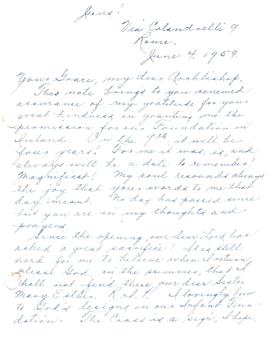 Jesus!
Via Colandrelli 9
Rome.
June 4, 1959.
Your Grace, my dear Archbishop,
This note brings to you renewed
assurance of my gratitude for your
great kindness in granting me the
permission for our Foundation in
Ireland. On the 7th, it will be
four years! For me it was, is, and
always will be a date to remember!
Magnificat! My soul resounds always
the joy that your words to me that
day meant. No day has passed since
but you are in my thoughts and
prayers!
Since the opening, our dear Lord has
asked a great sacrifice! It is still
hard for me to believe when I return,
please God, in the summer, that I
shall not find there our dear Sister
Mary Esther, I lovingly bow
to God's designs on our Infant Foun-
dation. The Cross is a sign, I hope,